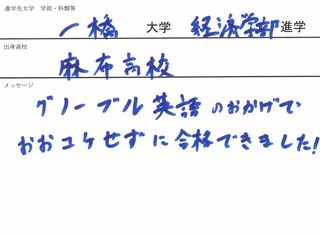 進学先大学 学部・科類等
一橋 大学 経済学部 進学
出身高校
麻布高校
メッセージ
グノーブル英語のおかげで
おおコケせずに合格できました!